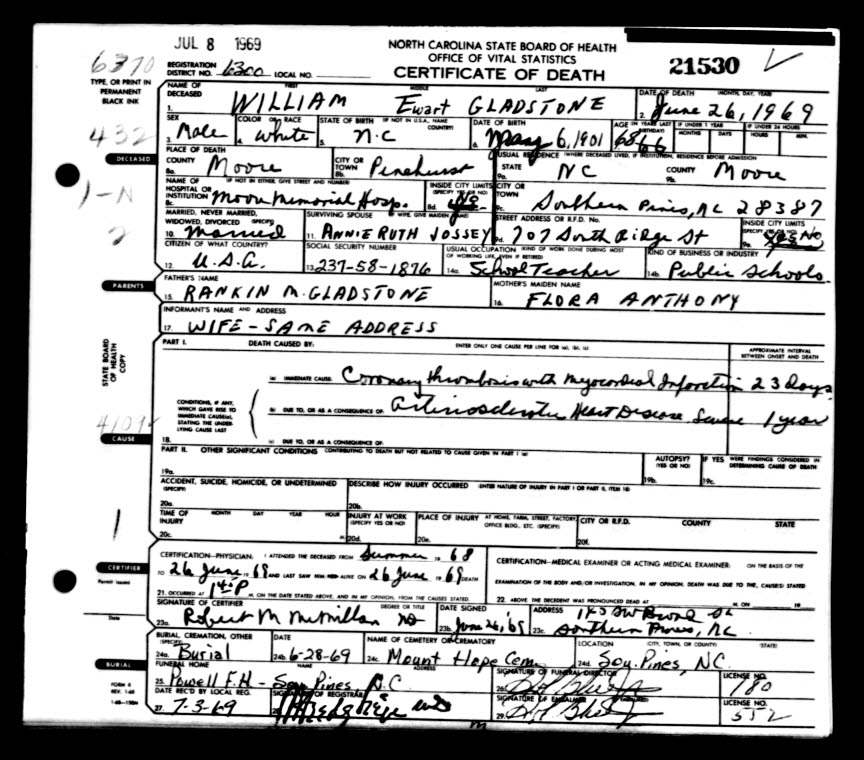 JUL 8 1969
NORTH CAROLINA STATE BOARD OF HEALTH
OFFICE OF VITAL STATISTICS
CERTIFICATE OF DEATH
21530
6370
TYPE, OR PRINT IN PERMANENT BLACK INK
REGISTRATION DISTRICT NO. 6300 LOCAL NO.
NAME OF DECEASED FIRST MIDDLE LAST
1. WILLIAM Ewart GLADSTONE
DATE OF DEATH (MONTH, DAY, YEAR)
2. June 26, 1969
432
SEX
3. Male
COLOR OR RACE
4. White
STATE OF BIRTH (IF NOT IN U.S.A., NAME COUNTRY)
5. N.C
DATE OF BIRTH
6. May 6, 1901
AGE (IN YEARS LAST BIRTHDAY)
68
IF UNDER 1 YEAR
MONTHS DAYS
IF UNDER 24 HOURS
HOURS MIN.
DECEASED
PLACE OF DEATH
COUNTY
8a. Moore
CITY OR TOWN
8b. Pinehurst
USUAL RESIDENCE (WHERE DECEASED LIVED, IF INSTITUTION, RESIDENCE BEFORE ADMISSION
STATE
9a. NC
COUNTY
9b. Moore
1-N
NAME OF HOSPITAL OR INSTITUTION (IF NOT IN EITHER, GIVE STREET AND NUMBER)
8c. Moore Memorial Hosp.
INSIDE CITY LIMITS (SPECIFY YES OR NO)
8d.
CITY OR TOWN
9c. Southern Pines, NC 28387
2
MARRIED, NEVER MARRIED, WIDOWED, DIVORCED (SPECIFY)
10. Married
SURVIVING SPOUSE (IF WIFE GIVE MAIDEN NAME)
11. ANNIE RUTH JOSSEY
STREET ADDRESS OR R.F.D. No.
9d. 707 South Ridge St
INSIDE CITY LIMITS (SPECIFY YES OR NO)
9e. No
CITIZEN OF WHAT COUNTRY?
12. U.S.A.
SOCIAL SECURITY NUMBER
13. 237-58-1876
USUAL OCCUPATION (KIND OF WORK DONE DURING MOST OF WORKING LIFE, EVEN IF RETIRED)
14a. School Teacher
KIND OF BUSINESS OR INDUSTRY
14b. Public Schools.
PARENTS
FATHER'S NAME
15. RANKIN M. GLADSTONE
MOTHER'S MAIDEN NAME
16. FLORA ANTHONY
INFORMANT'S NAME AND ADDRESS
17. WIFE - SAME ADDRESS
STATE BOARD OF HEALTH COPY
PART I. DEATH CAUSED BY: ENTER ONLY ONE CAUSE PER LINE FOR (a), (b), (c)
APPROXIMATE INTERVAL BETWEEN ONSET AND DEATH
(a) IMMEDIATE CAUSE: Coronary thrombosis with Myocardial Infarction 23 Days
CONDITIONS, IF ANY, WHICH GAVE RISE TO IMMEDIATE CAUSE(a), STATING THE UNDERLYING CAUSE LAST
(b) DUE TO, OR AS A CONSEQUENCE OF: Arteriosclerotic Heart Disease, Severe 1 year
CAUSE
18. (c) DUE TO, OR AS A CONSEQUENCE OF:
PART II. OTHER SIGNIFICANT CONDITIONS CONTRIBUTING TO DEATH BUT NOT RELATED TO CAUSE GIVEN IN PART I (a)
19a.
AUTOPSY? (YES OR NO)
19b.
IF YES WERE FINDINGS CONSIDERED IN DETERMINING CAUSE OF DEATH
19c.
ACCIDENT, SUICIDE, HOMICIDE, OR UNDETERMINED (SPECIFY)
20a.
DESCRIBE HOW INJURY OCCURRED (ENTER NATURE OF INJURY IN PART I OR PART II, ITEM 18)
20b.
1
TIME OF INJURY MONTH DAY YEAR HOUR
20c. M.
INJURY AT WORK (SPECIFY YES OR NO)
20d.
PLACE OF INJURY (AT HOME, FARM, STREET, FACTORY, OFFICE BLDG., ETC. (SPECIFY)
20e.
CITY OR R.F.D. COUNTY STATE
20f.
CERTIFIER
CERTIFICATION—PHYSICIAN: I ATTENDED THE DECEASED FROM Summer 19 68
TO 26 June 19 69 AND LAST SAW HIM/HER ALIVE ON 26 June 19 69 DEATH
21. OCCURRED AT M. ON THE DATE STATED ABOVE, AND IN MY OPINION, FROM THE CAUSES STATED.
CERTIFICATION—MEDICAL EXAMINER OR ACTING MEDICAL EXAMINER: ON THE BASIS OF THE
EXAMINATION OF THE BODY AND/OR INVESTIGATION, IN MY OPINION, DEATH WAS DUE TO THE, CAUSE(S) STATED
22. ABOVE. THE DECEDENT WAS PRONOUNCED DEAD AT M. ON 19
Permit Issued
Date
SIGNATURE OF CERTIFIER DEGREE OR TITLE
23a. Robert M McMillan MD
DATE SIGNED
23b. June 26, '69
ADDRESS
23c. Southern Pines, NC
BURIAL, CREMATION, OTHER (SPECIFY)
24a. Burial
DATE
24b. 6-28-69
NAME OF CEMETERY OR CREMATORY
24c. Mount Hope Cem.
LOCATION (CITY, TOWN, OR COUNTY) (STATE)
24d. Sou. Pines, NC.
BURIAL
FUNERAL HOME NAME ADDRESS
25. Powell F.H - Sou Pines N.C
SIGNATURE OF FUNERAL DIRECTOR
26.
LICENSE NO.
180
FORM 8
REV. 1-68
DATE REC'D BY LOCAL REG.
27. 7-3-69
SIGNATURE OF REGISTRAR
28.
SIGNATURE OF EMBALMER
29.
LICENSE NO.
552